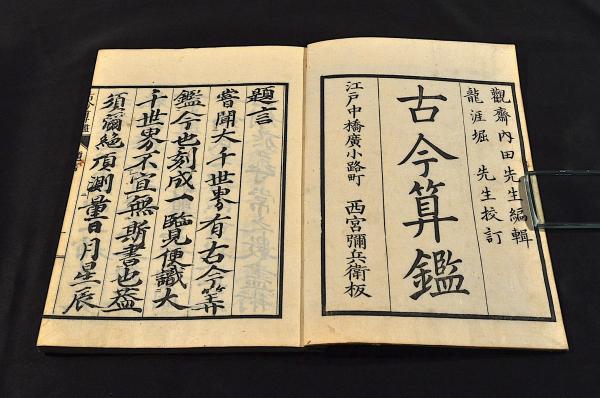 觀齋内田先生編輯
龍涯堀 先生校訂
古今算鑑
江戸中橋廣小路町 西宮彌兵衛板
題言
嘗聞大千世界有古今筭
鑑今也刻成一覧便識大
千世界不宜無斯書也盖
須彌絶頂測量日月星辰